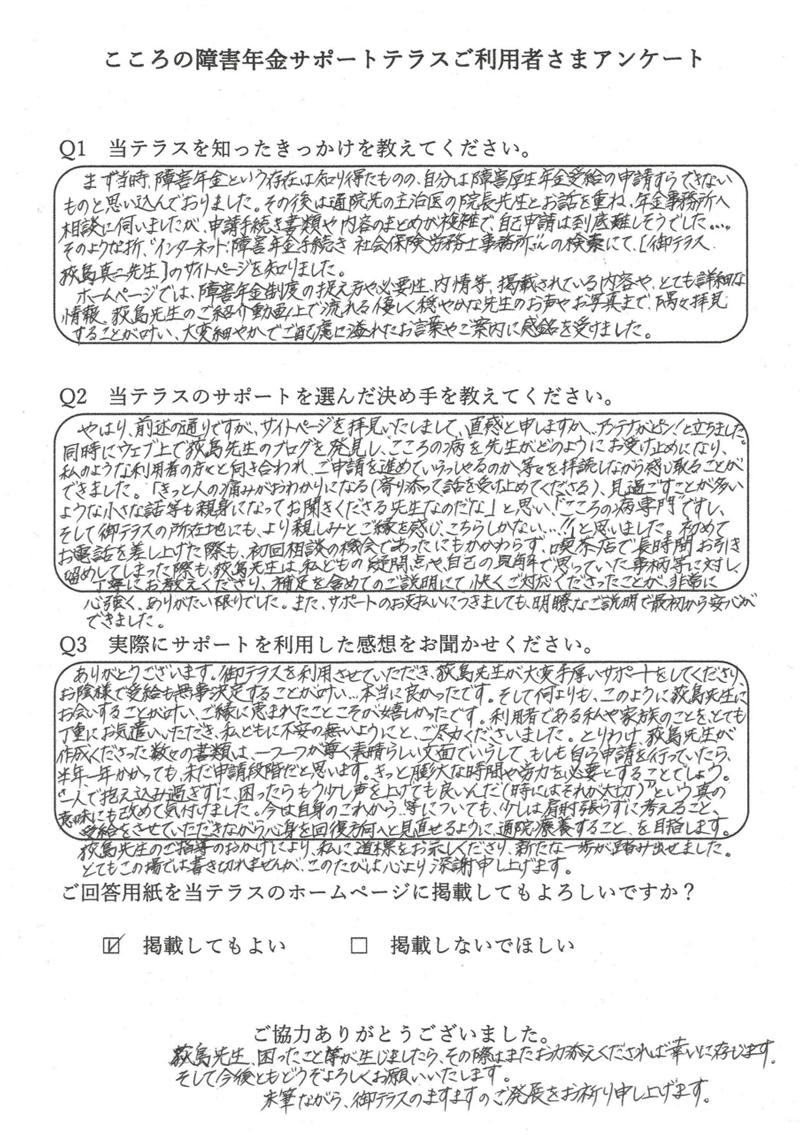 こころの障害年金サポートテラスご利用者さまアンケート
Q1　当テラスを知ったきっかけを教えてください。
まず当時、障害年金という存在は知り得たものの、自分は障害厚生年金受給の申請すらできない
ものと思い込んでおりました。その後は通院先の主治医の院長先生とお話を重ね、年金事務所へ
相談に伺いましたが、申請手続き書類や内容のまとめが複雑で、自己申請は到底難しそうでした…。
そのような折、インターネット障害年金手続き 社会保険労務士事務所さんの検索にて、[御テラス
荻島真二先生]のサイトページを知りました。
ホームページでは、障害年金制度の捉え方や必要性、内情等、掲載されている内容や、とても詳細な
情報、荻島先生のご紹介動画上で流れる優しく穏やかな先生のお声やお写真まで、隅々拝見
することが叶い、大変細やかでご配慮に溢れたお言葉やご案内に感銘を受けました。
Q2　当テラスのサポートを選んだ決め手を教えてください。
やはり、前述の通りですが、サイトページを拝見いたしまして、直感と申しますか、アンテナがピン!と立ちました。
同時にウェブ上で荻島先生のブログを発見し、こころの病を先生がどのようにお受け止めになり、
私のような利用者の方々と向き合われ、ご申請を進めていらっしゃるのか、等々を拝読しながら感じ取ることが
できました。「きっと人の痛みがおわかりになる(寄り添って話を受け止めてくださる)、見過ごすことが多い
ような小さな話等も親身になってお聞きくださる先生なのだな」と思い、「こころの病専門」ですし、
そして御テラスの所在地にも、より親しみとご縁を感じ、こちらしかない…!!と思いました。初めて
お電話を差し上げた際も、初回相談の機会であったにもかかわらず、喫茶店で長時間お引き
留めしてしまった際も、荻島先生は、私どもの疑問点や、自己の見解で思っていた事柄等に対し、
丁寧にお教えくださり、補足を含めてのご説明にて、快くご対応くださったことが、非常に
心強く、ありがたい限りでした。また、サポートのお支払いにつきましても、明瞭なご説明で最初から安心が
できました。
Q3　実際にサポートを利用した感想をお聞かせください。
ありがとうございます。御テラスを利用させていただき、荻島先生が大変手厚いサポートをしてくださり、
お陰様で受給も無事決定することが叶い…本当に良かったです。そして何よりも、このように荻島先生に
お会いすることが叶い、ご縁に恵まれたことこそが嬉しかったです。利用者である私や家族のことを、とても
丁重にお気遣いいただき、私どもに不安の無いようにと、ご尽力くださいました。とりわけ荻島先生が
作成くださった数々の書類は、一つ一つが尊く素晴らしい文面でいらして、もしも自ら申請を行っていたら、
半年一年かかっても、未だ申請段階だと思います。きっと膨大な時間や労力を必要とすることでしょう。
“一人で抱え込み過ぎずに、困ったらもう少し声を上げても良いんだ(時にはそれが大切)”という真の
意味にも改めて気付けました。今は自身のこれから…等についても、少しは肩肘張らずに考えること、
受給をさせていただきながら心身を回復方向へと見直せるように、通院・療養すること、を目指します。
荻島先生のご指導のおかげにより、私に道標をお示しくださり、新たな一歩が踏み出せました。
とてもこの場では書き切れませんが、このたびは心より深謝申し上げます。
ご回答用紙を当テラスのホームページに掲載してもよろしいですか？
☑　掲載してもよい　　☐　掲載しないでほしい
ご協力ありがとうございました。
荻島先生、困ったこと等が生じましたら、その際はまたお力添えくだされば幸いに存じます。
そして今後ともどうぞよろしくお願いいたします。
末筆ながら、御テラスのますますのご発展をお祈り申し上げます。